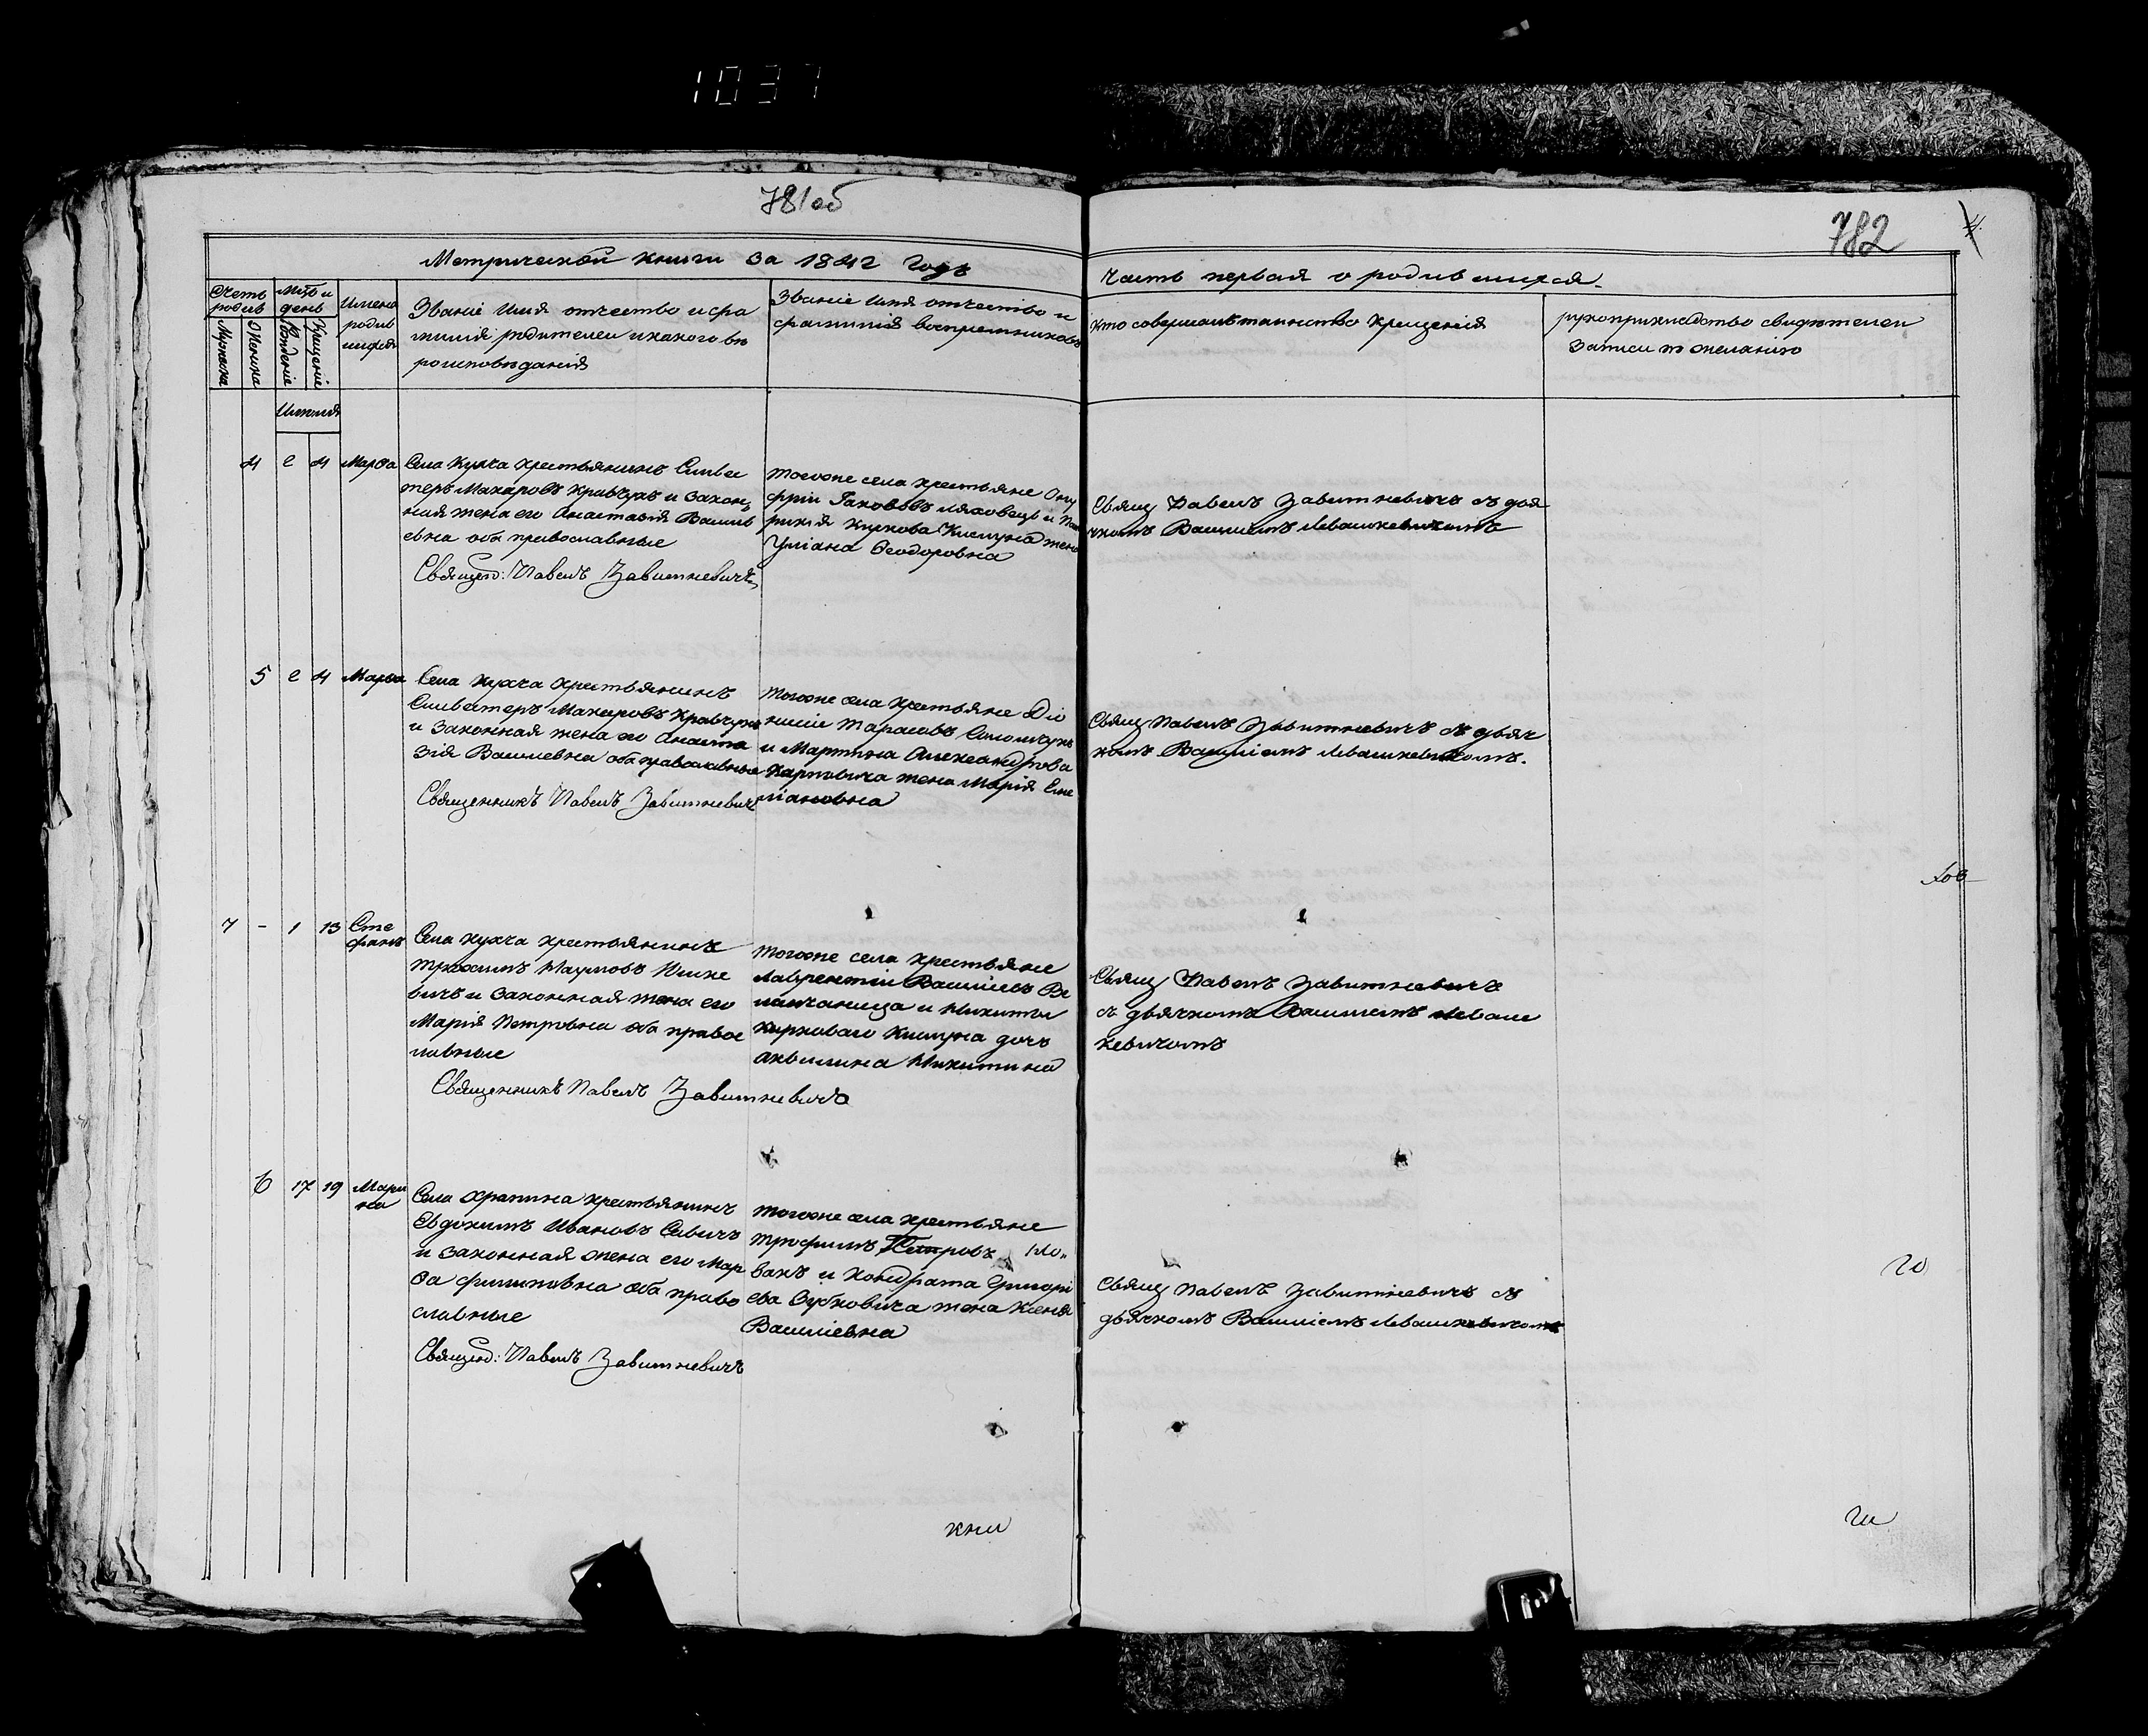 1037
781об
782
4
Метрической книги за 1842 годъ
Часть первая о родившихся.
Счетъ родив
Мужеска
Женска
Мць и день
Рожденіе
Крещеніе
Имена
родив
шихся
Званіе имя отчество и фа
милія родителей и какого вѣ
роисповѣданія
Званіе имя отчество и
фамилія воспріемниковъ
кто совершалъ таинство крещенія
рукоприкладство свидѣтелей
записи по желанію
4 2 4 Марѳа
Села Кухча крестьянинъ Сильве
теръ Макаровъ Кравчукъ и закон
ная жена его Анастазія Василь
евна оба православные
Священ: Павелъ Завитневичъ
тогоже села крестьяне Ону
фрій Яковлевъ Ляховецъ и
Климука жена
Уліана Ѳеодоровна
Свящ Павелъ Завитневичъ съ дья
чкомъ Василіемъ Левашкевичемъ
5 2 4 Марѳа
Села Кухча крестьянинъ
Сильветеръ Макаровъ Кравчукъ
и законная жена его Анаста
зія Василевна оба православные
Священникъ Павелъ Завитневичъ
тогоже села крестьяне Діо
нисій Тарасовъ
и Мартина Александрова
Карповича жена Марія Еме
ліановна
Свящ Павелъ Завитневичъ съ дьяч
комъ Василіемъ Левашкевичомъ.
7 - 1 13 Сте
фанъ
Села Кухча крестьянинъ
Трохимъ Наумовъ
вичъ и законная жена его
Марія Петровна оба правос
лавные
Священникъ Павелъ Завитневичъ
тогоже села крестьяне
Лаврентій Василіевъ Ве
личаница и Никиты
Климука дочь
Акилина Никитина
Свящ Павелъ Завитневичъ
съ дьячкомъ Василіемъ Леваш
кевичомъ
6 17 19 Мари
на
Села Храпина крестьянинъ
Евдокимъ Ивановъ Севичъ
и законная жена его Мар
ѳа Филиповна оба право
славные
Священ: Павелъ Завитневичъ
тогоже села крестьяне
Трофимъ Петровъ Но
вакъ и Кондрата Григорі
ева Зубковича жена Ксенія
Василіевна
Свящ Павелъ Завитневичъ съ
дьячкомъ Василіемъ Левашкевичомъ
ков
го
кни
ги